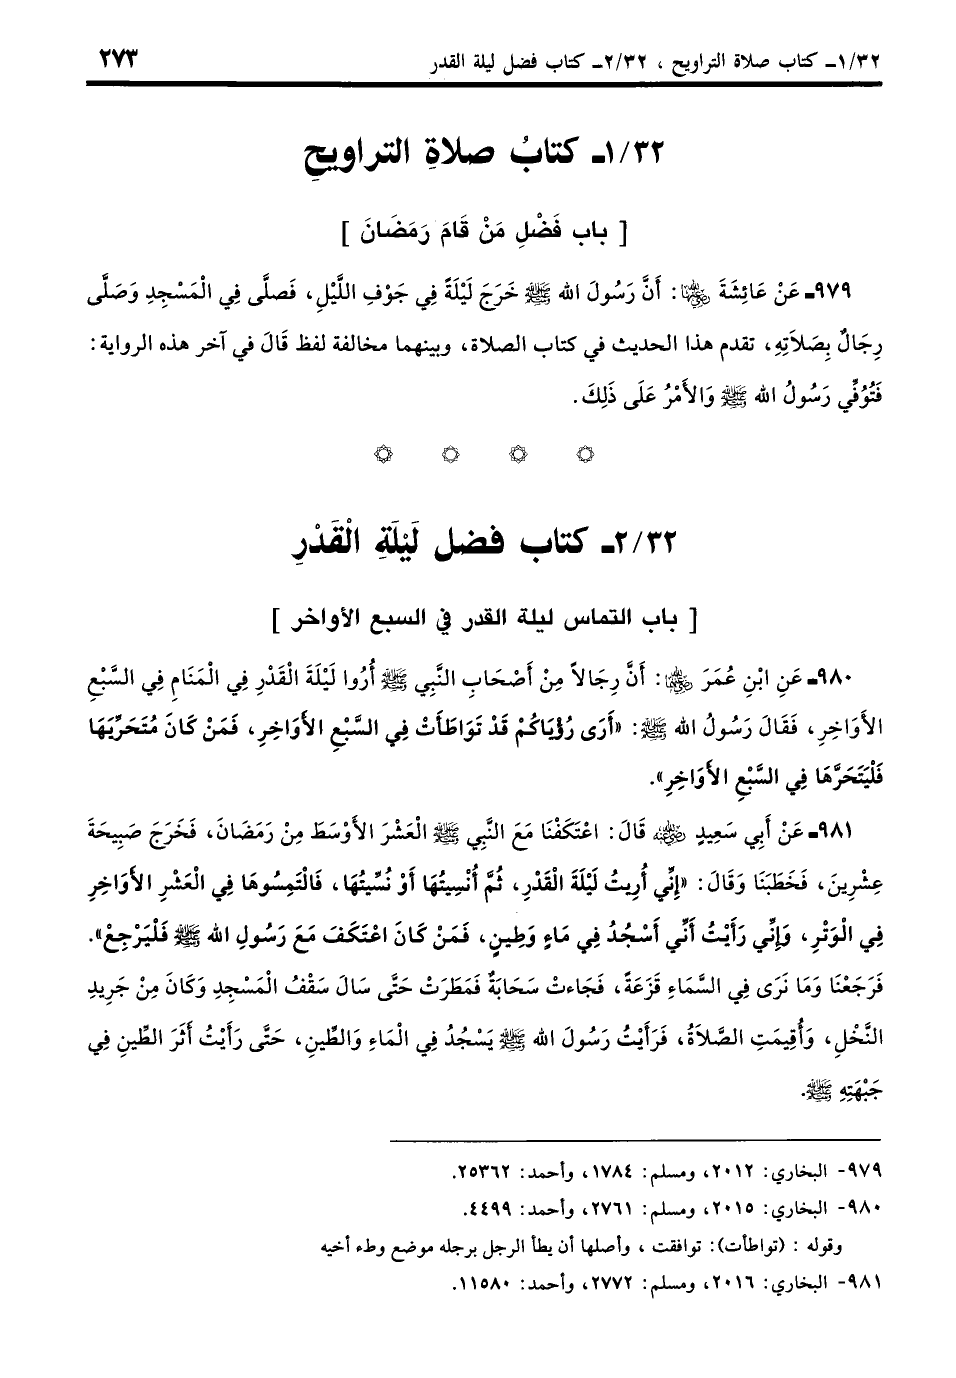 ١/٣٢ـ كتاب صلاة التراويح ، ٢/٣٢ـ كتاب فضل ليلة القدر ٢٧٣
١/٣٢ـ كتابُ صلاةِ التراويحِ
[ باب فَضْلِ مَنْ قَامَ رَمَضَانَ ]
٩٧٩ـ عَنْ عَائِشَةَ رضي الله عنها: أَنَّ رَسُولَ الله ﷺ خَرَجَ لَيْلَةً فِي جَوْفِ اللَّيْلِ، فَصلَّى فِي الْمَسْجِدِ وَصَلَّى
رِجَالٌ بِصَلاَتِهِ، تقدم هذا الحديث في كتاب الصلاة، وبينهما مخالفة لفظ قَالَ في آخر هذه الرواية:
فَتُوُفِّي رَسُولُ الله ﷺ وَالأَمْرُ عَلَى ذَلِكَ.
٢/٣٢ـ كتاب فضل لَيْلَةِ الْقَدْرِ
[ باب التماس ليلة القدر في السبع الأواخر ]
٩٨٠ـ عَنِ ابْنِ عُمَرَ رضي الله عنهما: أَنَّ رِجَالاً مِنْ أَصْحَابِ النَّبِي ﷺ أُرُوا لَيْلَةَ الْقَدْرِ فِي الْمَنَامِ فِي السَّبْعِ
الأَوَاخِرِ، فَقَالَ رَسُولُ الله ﷺ: «أَرَى رُؤْيَاكُمْ قَدْ تَوَاطَأَتْ فِي السَّبْعِ الأَوَاخِرِ، فَمَنْ كَانَ مُتَحَرِّيَهَا
فَلْيَتَحَرَّهَا فِي السَّبْعِ الأَوَاخِرِ».
٩٨١ـ عَنْ أَبِي سَعِيدٍ رضي الله عنه قَالَ: اعْتَكَفْنَا مَعَ النَّبِي ﷺ الْعَشْرَ الأَوْسَطَ مِنْ رَمَضَانَ، فَخَرَجَ صَبِيحَةَ
عِشْرِينَ، فَخَطَبَنَا وَقَالَ: «إِنِّي أُرِيتُ لَيْلَةَ الْقَدْرِ، ثُمَّ أُنْسِيتُهَا أَوْ نُسِّيتُهَا، فَالْتَمِسُوهَا فِي الْعَشْرِ الأَوَاخِرِ
فِي الْوَتْرِ، وَإِنِّي رَأَيْتُ أَنِّي أَسْجُدُ فِي مَاءٍ وَطِينٍ، فَمَنْ كَانَ اعْتَكَفَ مَعَ رَسُولِ الله ﷺ فَلْيَرْجِعْ».
فَرَجَعْنَا وَمَا نَرَى فِي السَّمَاءِ قَزَعَةً، فَجَاءتْ سَحَابَةٌ فَمَطَرَتْ حَتَّى سَالَ سَقْفُ الْمَسْجِدِ وَكَانَ مِنْ جَرِيدِ
النَّخْلِ، وَأُقِيمَتِ الصَّلاَةُ، فَرَأَيْتُ رَسُولَ الله ﷺ يَسْجُدُ فِي الْمَاءِ وَالطِّينِ، حَتَّى رَأَيْتُ أَثَرَ الطِّينِ فِي
جَبْهَتِهِ ﷺ.
٩٧٩- البخاري: ٢٠١٢، ومسلم: ١٧٨٤، وأحمد: ٢٥٣٦٢.
٩٨٠- البخاري: ٢٠١٥، ومسلم: ٢٧٦١، وأحمد: ٤٤٩٩.
وقوله : (تواطأت): توافقت ، وأصلها أن يطأ الرجل برجله موضع وطء أخيه
٩٨١- البخاري: ٢٠١٦، ومسلم: ٢٧٧٢، وأحمد: ١١٥٨٠.